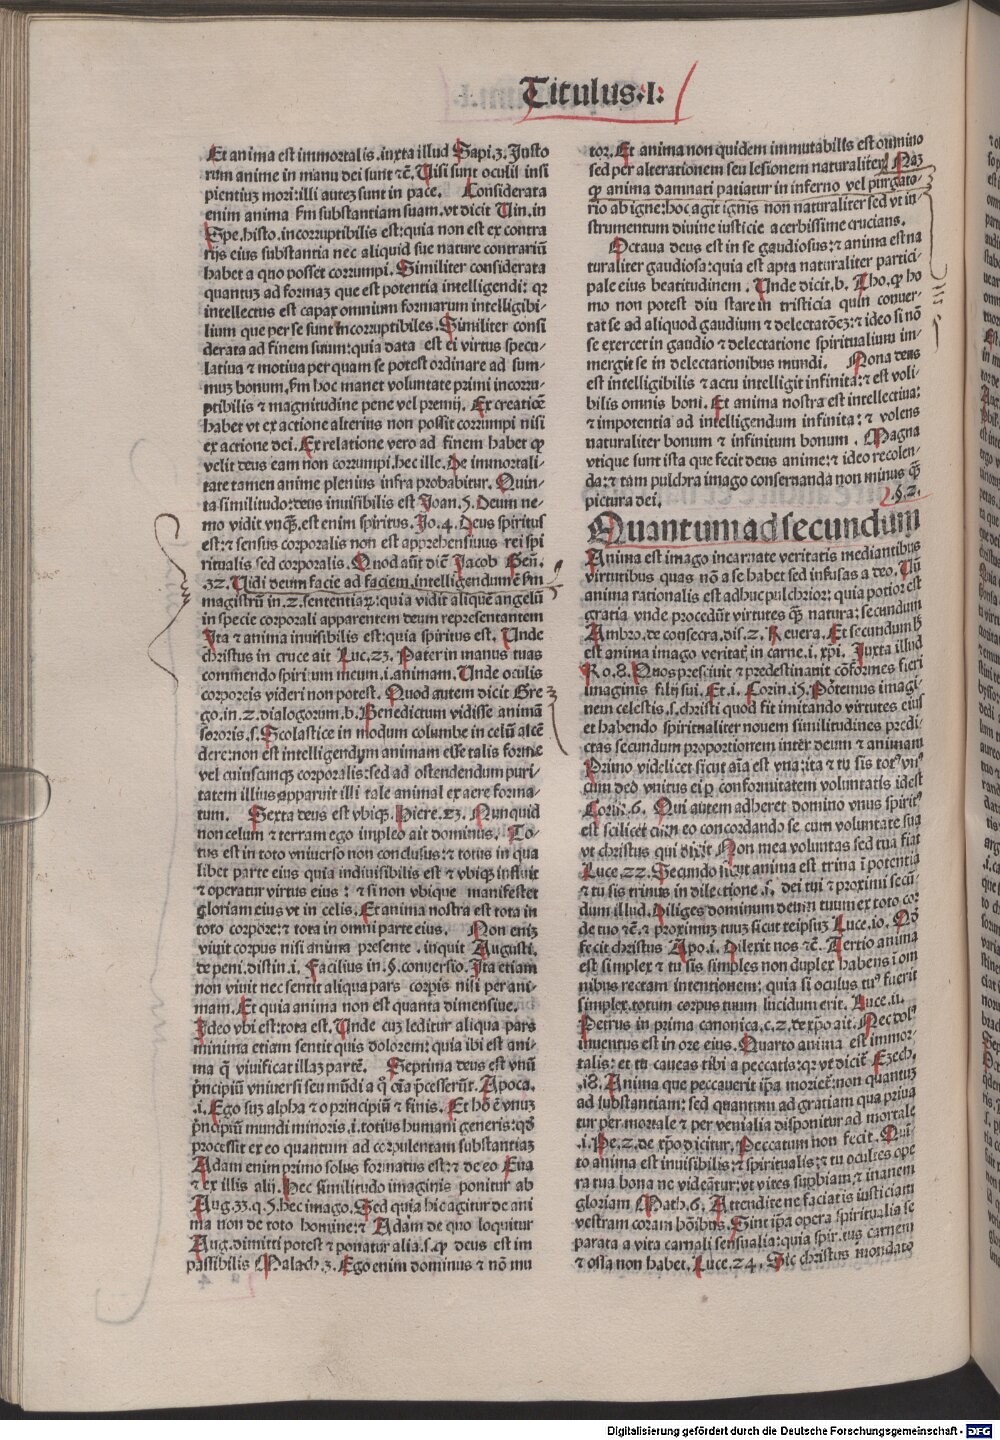 Titulus .I.
Et anima est immortalis. iuxta illud Sapi.3. Justo
rum anime in manu dei sunt ⁊c̄. Visi sunt oculis insi
pientiuꝫ mori: illi auteꝫ sunt in pace. Considerata
enim anima ẜm substantiam suam. vt dicit Vin. in
Spe. histo. incorruptibilis est: quia non est ex contra
rijs eius substantia nec aliquid sue nature contrariū
habet a quo posset corrumpi. Similiter considerata
quantuꝫ ad formaꝫ que est potentia intelligendi: qꝛ
intellectus est capax omnium formarum intelligibi-
lium que per se sunt incorruptibiles. Similiter consi
derata ad finem suum: quia data est ei virtus specu-
latiua ⁊ motiua per quam se potest ordinare ad sum-
muꝫ bonum. ẜm hoc manet voluntate primi incorru-
ptibilis ⁊ magnitudine pene vel premij. Ex creatiōe
habet vt ex actione alterius non possit corrumpi nisi
ex actione dei. Ex relatione vero ad finem habet ꝙ
velit deus eam non corrumpi. hec ille. De immortali-
tate tamen anime plenius infra probabitur. Quin-
ta similitudo: deus inuisibilis est Joan.5. Deum ne-
mo vidit vnq̄ꝫ. est enim spiritus. Jo.4. Deus spiritus
est: ⁊ sensus corporalis non est apprehensiuus rei spi
ritualis sed corporalis. Quod aūt dic̄ Jacob Gen̄.
32. Vidi deum facie ad faciem. intelligendum ē ẜm
magistrū in.2. sententiaꝝ: quia vidit aliquē angelū
in specie corporali apparentem deum representantem
Ita ⁊ anima inuisibilis est: quia spiritus est. Unde
christus in cruce ait Luc.23. Pater in manus tuas
commendo spiritum meum. i. animam. Unde oculis
corporeis videri non potest. Quod autem dicit Gre
go. in.2. dialogorum. b. Benedictum vidisse animā
sororis. s. Scolastice in modum columbe in celū ascē
dere: non est intelligendum animam esse talis forme
vel cuiuscunqꝫ corporalis: sed ad ostendendum puri-
tatem illius apparuit illi tale animal ex aere forma-
tum. Sexta deus est vbiqꝫ. Hiere.23. Nunquid
non celum ⁊ terram ego impleo ait dominus. To-
tus est in toto vniuerso non conclusus: ⁊ totus in qua
libet parte eius quia indiuisibilis est ⁊ vbiqꝫ influit
⁊ operatur virtus eius: ⁊ si non vbique manifestet
gloriam eius vt in celis. Et anima nostra est tota in
toto corpore: ⁊ tota in omni parte eius. Non eniꝫ
viuit corpus nisi anima presente. inquit Augusti.
de peni. distin.i. Facilius in.§. conuersio. Ita etiam
non viuit nec sentit aliqua pars corpis nisi per ani-
mam. Et quia anima non est quanta dimensiue.
Ideo vbi est: tota est. Unde cuꝫ leditur aliqua pars
minima etiam sentit quis dolorem: quia ibi est ani-
ma q̄ viuificat illaꝫ partē. Septima deus est vnū
p̄ncipiū vniuersi seu mūdi a q̄ oīa p̄cesserūt. Apoca.
.i. Ego suꝫ alpha ⁊ o principiū ⁊ finis. Et hō ē vnuꝫ
p̄ncipiū mundi minoris. i. totius humani generis: qđ
processit ex eo quantum ad corpulentam substantiaꝫ
Adam enim primo solus formatus est: ⁊ de eo Eua
⁊ ex illis alij. Hec similitudo imaginis ponitur ab
Aug.33.q.5. hec imago. Sed quia hic agitur de ani
ma non de toto homine: ⁊ Adam de quo loquitur
Aug. dimitti potest ⁊ ponatur alia. s. ꝙ deus est im
passibilis Malach.3. Ego enim dominus ⁊ nō mu
tor. Et anima non quidem immutabilis est omnino
sed per alterationem seu lesionem naturaliter. Naꝫ
ꝙ anima damnati patiatur in inferno vel purgato-
rio ab igne: hoc agit ignis non naturaliter sed vt in-
strumentum diuine iusticie acerbissime crucians.
Octaua deus est in se gaudiosus: ⁊ anima est na
turaliter gaudiosa: quia est apta naturaliter partici-
pale eius beatitudinem. Unde dicit. b. Tho. ꝙ ho
mo non potest diu stare in tristicia quin conuer-
tat se ad aliquod gaudium ⁊ delectatōeꝫ: ⁊ ideo si nō
se exercet in gaudio ⁊ delectatione spiritualium im-
mergit se in delectationibus mundi. Nona deus
est intelligibilis ⁊ actu intelligit infinita: ⁊ est voli-
bilis omnis boni. Et anima nostra est intellectiua:
⁊ impotentia ad intelligendum infinita: ⁊ volens
naturaliter bonum ⁊ infinitum bonum. Magna
vtique sunt ista que fecit deus anime: ⁊ ideo recolen-
da: ⁊ tam pulchra imago conseruanda non minus q̄ꝫ
pictura dei. .§.2.
Quantum ad secundum
Anima est imago incarnate veritatis mediantibus
virtutibus quas nō a se habet sed infusas a deo. Tū
anima rationalis est adhuc pulchrior: quia potior est
gratia vnde procedūt virtutes q̄ꝫ natura: secundum
Ambro. de consecra. dis.2. Reuera. Et secundum h̄
est anima imago veritatꝭ in carne. i. xp̄i. Juxta illud
Ro.8. Quos presciuit ⁊ predestinauit cōformes fieri
imaginis filij sui. Et.i. Corin.15. Portemus imagi
nem celestis. s. christi quod fit imitando virtutes eius
et habendo spiritualiter nouem similitudines predi-
ctas secundum proportionem inter deum ⁊ animam
Primo videlicet sicut aīa est vna: ita ⁊ tu sis totꝰ vnꝰ
cum deo vnitus ei ꝑ conformitatem voluntatis idest
Corin.6. Qui autem adheret domino vnus spiritꝰ
est scilicet cum eo concordando se cum voluntate sua
vt christus qui dixit Non mea voluntas sed tua fiat
Luce.22. Secundo sicut anima est trina ī potentia
⁊ tu sis trinus in dilectione. s. dei tui ⁊ proximi secū-
dum illud. Diliges dominum deum tuum ex toto cor
de tuo ⁊c̄. ⁊ proximuꝫ tuuꝫ sicut teipsuꝫ Luce.10. Qđ
fecit christus Apo.i. Dilexit nos ⁊c̄. Tertio anima
est simplex ⁊ tu sis simplex non duplex habens ī om
nibus rectam intentionem: quia si oculus tuꝰ fuerit
simplex. totum corpus tuum lucidum erit. Luce.11.
Petrus in prima canonica. c.2. de xp̄o ait. Nec dolꝰ
inuentus est in ore eius. Quarto anima est immor-
talis: et tu caueas tibi a peccatis: qꝛ vt dicit̄ Ezech.
.18. Anima que peccauerit ip̄a moriet̄: non quantuꝫ
ad substantiam: sed quantum ad gratiam qua priua
tur per mortale ⁊ per venialia disponitur ad mortale
.i. Pe.2. de xp̄o dicitur. Peccatum non fecit. Quin
to anima est inuisibilis: ⁊ spiritualis: ⁊ tu occultes ope
ra tua bona ne videāt̄ur: vt vites supbiam: ⁊ inanem
gloriam Math.6. Attendite ne faciatis iusticiam
vestram coram hoībus. Sint ip̄a opera spiritualia se
parata a vita carnali sensualia: quia spiritus carnem
⁊ ossa non habet. Luce.24. Sic christus mondato
Digitalisierung gefördert durch die Deutsche Forschungsgemeinschaft - DFG